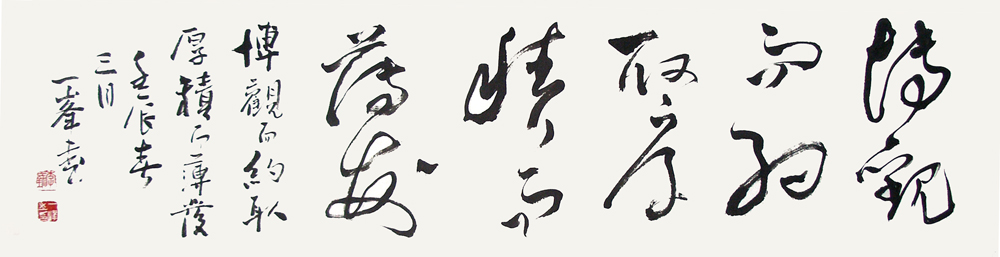 博觀
而約
取厚
積而
薄發
博觀而約取
厚積而薄發
壬辰春
三月
一峯書